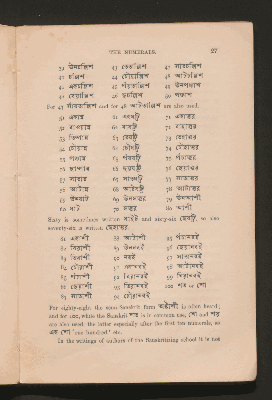 THE NUMERALS. 27
39 উনচল্লিশ 43 তেতাল্লিশ 47 সাতচল্লিশ
40 চল্লিশ 44 চৌয়াল্লিশ 48 আটচল্লিশ
41 একচল্লিশ 45 পঁয়তাল্লিশ 49 উনপঞ্চাশ
42 বেয়াল্লিশ 46 ছচল্লিশ 50 পঞ্চাশ
For 47 and for 48 are also used.
51 একান্ন 61 একষট্টি 71 একাত্তর
52 বাওয়ান্ন 62 বাষট্টি 72 বাহাত্তর
53 তিপ্পান্ন 63 তেষট্টি 73 তেহাত্তর
54 চৌয়ান্ন 64 চৌষট্টি 74 চৌহাত্তর
55 পঞ্চান্ন 65 পঁয়ষট্টি 75 পঁচাত্তর
56 ছাপ্পান্ন 66 ছয়ষট্টি 76 ছেয়াত্তর
57 সাতান্ন 67 সাতষট্টি 77 সাতাত্তর
58 আটান্ন 68 আটষট্টি 78 আটাত্তর
59 উনষাট 69 উনসত্তর 79 উনআশী
60 ষাট 70 সত্তর 80 আশী
Sixty is sometimes written and sixty-six so also
seventy-six is written
81 একাশী 88 আটাশী 95 পঁচানবই
82 বিরাশী 89 উননবই 96 ছেয়ানবই
83 তিরাশী 90 নবই 97 সাতানবই
84 চৌরাশী 91 একানবই 98 আটানবই
85 পঁচাশী 92 বিরানবই 99 নিরানবই
86 ছেয়াশী 93 তিরানবই 100 শত or শো
87 সাতাশী 94 চৌরানবই
For eighty-eight the semi-Sanskrit form অষ্টাশী is often heard;
and for 100, while the Sanskrit শত is in common use, শো and
are also used, the latter especially after the first ten numerals, as
এক শো 'one hundred,' etc.
In the writings of authors of the Sanskritizing school it is not